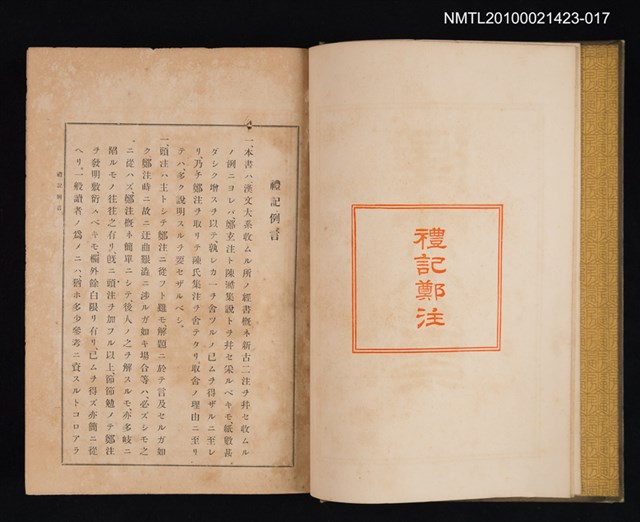 NMTL20100021423-017
禮記鄭注
禮記例言
一、本書ハ漢文大系收ムル所ノ經書槪ネ新古二注ヲ幷セ收ムル
ノ例ニヨレバ、鄭玄注ト陳澔集說トヲ幷セ采ルベキモ、紙數甚
ダシク增スヲ以テ、孰レカ一ヲ舍ツルノ已ムヲ得ザルニ至レ
リ、乃チ鄭注ヲ取リテ陳氏集注ヲ舍テタリ、取舍ノ理由ニ至リ
テハ、多ク說明スルヲ要セザルベシ、
一、頭注ハ主トシテ鄭注ニ從フト雖モ解題ニ於テ言及セルガ如
ク鄭注時ニ故ニ迂曲類議ニ涉ルガ如キ場合等ハ、必ズシモ之
ニ從ハズ、鄭注槪ネ簡單ニシテ、後人ノ之ヲ解スルモ、亦多岐ニ
ルモノ往往之有リ、旣ニ頭注ヲ加フル以上、節節勉メテ鄭注
ヲ發明敷衍スベキモ、欄外餘白限リ有リ、已ムヲ得ズ亦簡ニ從
ヘリ、一般讀者ノ爲メニハ、猶ホ多少參考ニ資スルトコロアラ
禮記例言